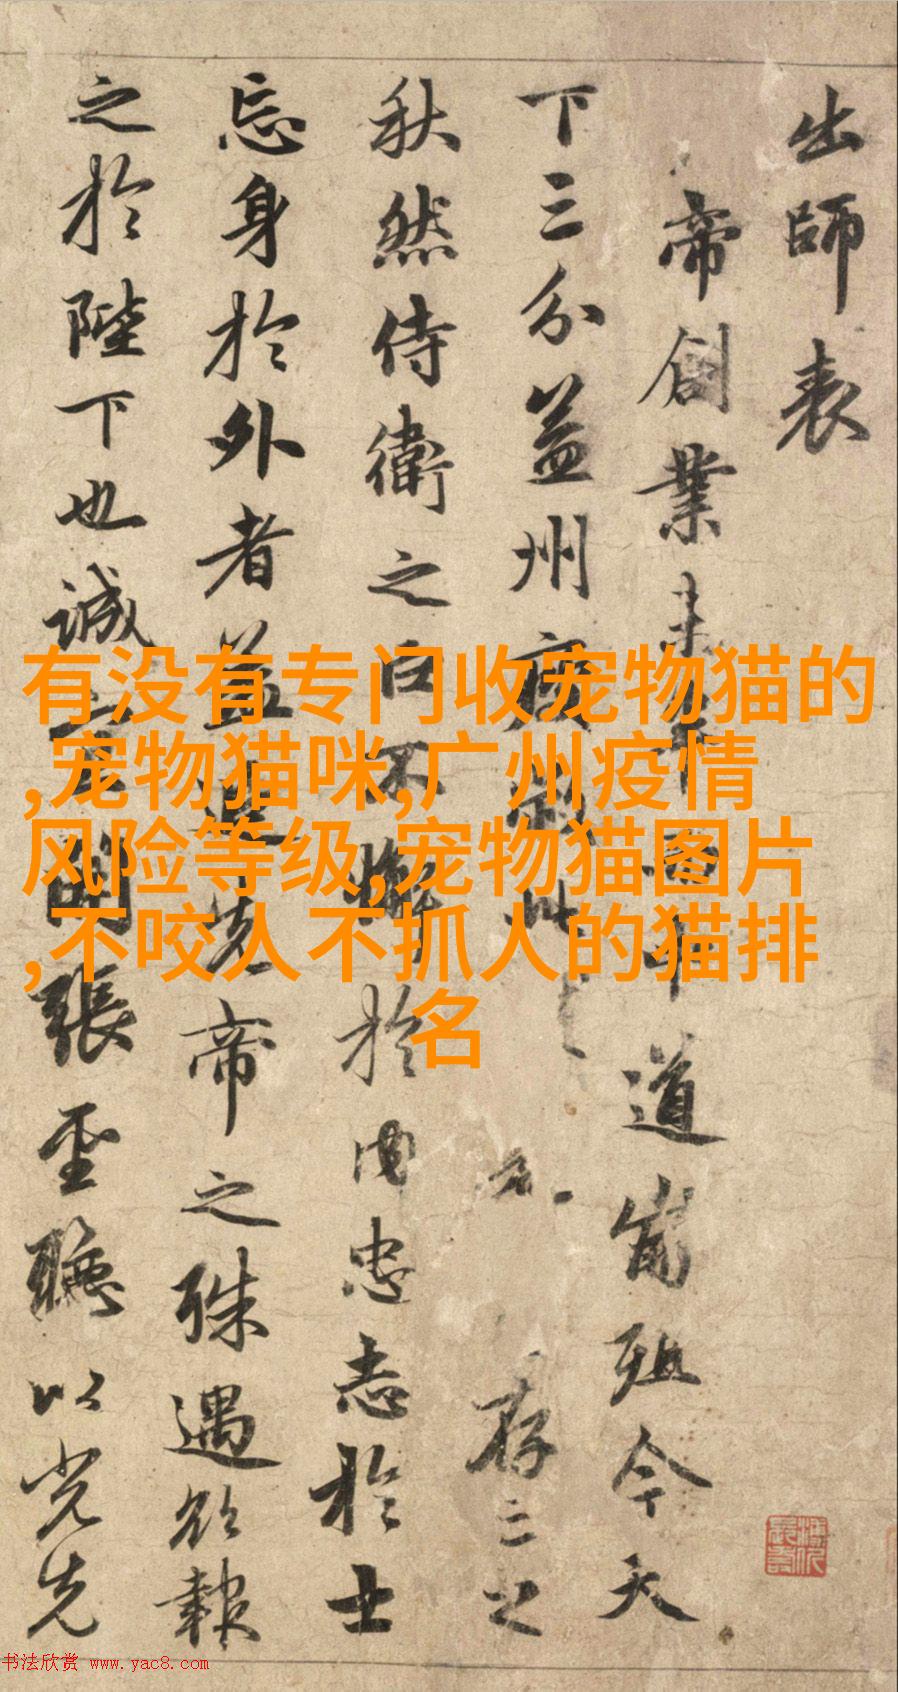 出師表
帝創業未半中道崩殂今天
下三分益州疲弊此存亡之
秋然侍衛之臣不懈於内忠志於士
忘身於外者益追先帝之殊遇欲報
之於陛下也誠宜開張聖聽以光先
有没有专门收宠物猫的
,宠物猫咪,广州疫情
风险等级,宠物猫图片
,不咬人不抓人的猫排
名
书法欣赏 www.yac8.com